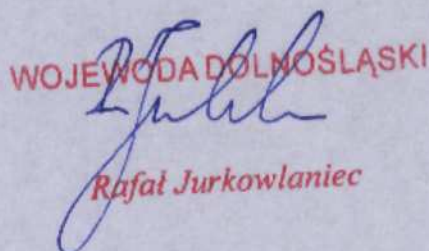 WOJEWODA DOLNOŚLĄSKI
Rafał Jurkowlaniec